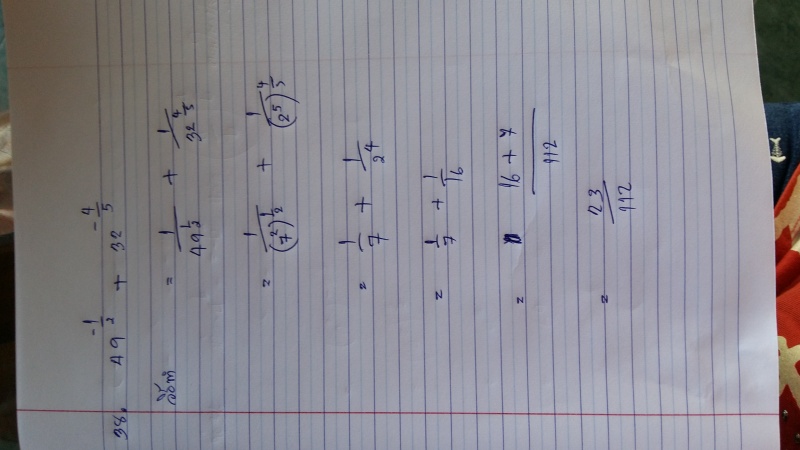 38. 49^{-\frac{1}{2}} + 32^{-\frac{4}{5}}
วิธีทำ = \frac{1}{49^{\frac{1}{2}}} + \frac{1}{32^{\frac{4}{5}}}
= \frac{1}{(7^2)^{\frac{1}{2}}} + \frac{1}{(2^5)^{\frac{4}{5}}}
= \frac{1}{7} + \frac{1}{2^4}
= \frac{1}{7} + \frac{1}{16}
= \frac{16 + 7}{112}
= \frac{23}{112}